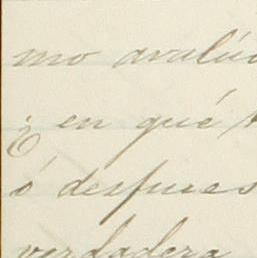 mo avalúo
¿en qué
ó despues
verdadera